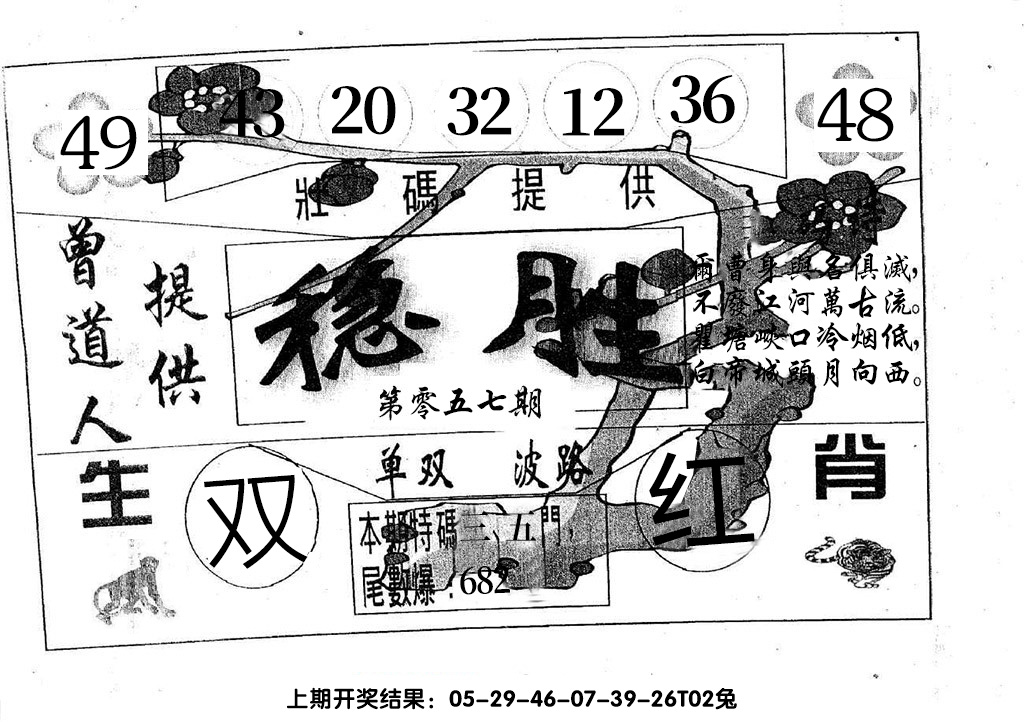 49 43 20 32 12 36 48
壯碼提供
特
曾道人
提供
稳胜
第零五七期
爾曹身與名俱滅，
不廢江河萬古流。
瞿塘峽口冷烟低，
白帝城頭月向西。
单双 波路
生肖
双
红
本期特碼三、五門，
尾數爆：682
上期开奖结果：05-29-46-07-39-26T02兔